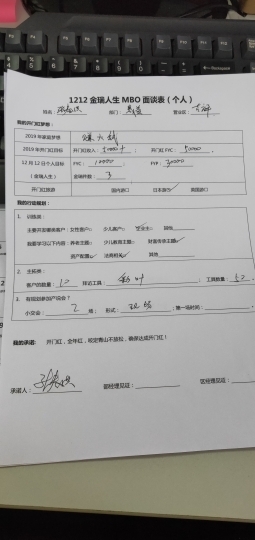 1212 金瑞人生 MBO 面谈表（个人）
姓名： 部门： 营业区：
我的开门红梦想：
2019 年家庭梦想
2019 年开门红目标 开门红收入： 50000+ ； 开门红 FYC： 50000
12 月 12 日个人目标 FYC： 10000 FYP： 30000
（金瑞人生） 金瑞件数： 3
开门红旅游 国内游□ 日本游☑ 美国游□
我的行动规划：
1. 训练营：
主要开发哪类客户：女性客户□ 少儿客户□ 企业主☑ 其他
我要学习以下内容：养老主题□ 少儿教育主题□ 财富传承主题☑
资产配置☑ 法商相关☑ 其他
2. 主拓榜：
客户的数量： 10 拜访工具： 彩叶 ；工具数量： 50
3. 有规划参加产说会？
小交会： 2 场； 形式： 现场 ；第一场时间：
我的承诺： 开门红，全年红，咬定青山不放松，确保达成开门红！
承诺人： 部经理见证： 区经理见证：